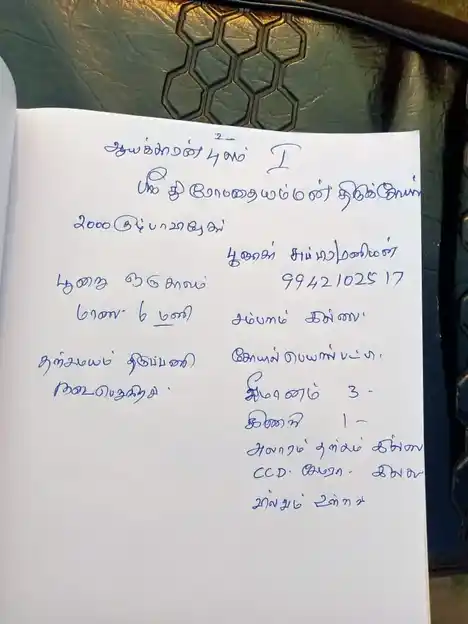 2
ஆயக்காரன் புலம் I
ஸ்ரீ திரௌபதையம்மன் திருக்கோயில்
2000 குடும்பாபிஷேகம்
பூசகர் சுப்பிரமணியன்
பூஜை ஒருகாலம்
9942102517
மாலை 6 மணி
சம்பளம் இல்லை.
தற்சமயம் திருப்பணி
நடைபெறுகிறது.
கோயில் பெயர் பட்டா.
3 -
1 -
அலாரம் இல்லை
CCD. கேமரா. இல்லை
உள்ளது